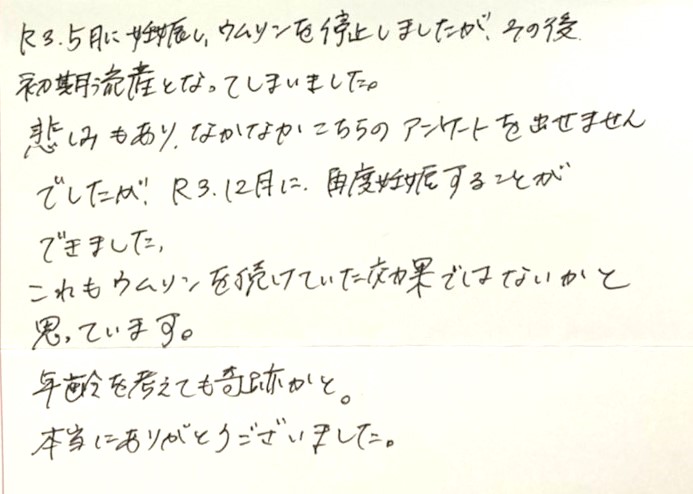 R3.5月に妊娠し、ウムリンを停止しましたが、その後
初期流産となってしまいました。
悲しみもあり、なかなかこちらのアンケートを出せません
でしたが、R3.12月に、再度妊娠することが
できました、
これもウムリンを続けていた効果ではないかと
思っています。
年齢を考えても奇跡かと。
本当にありがとうございました。